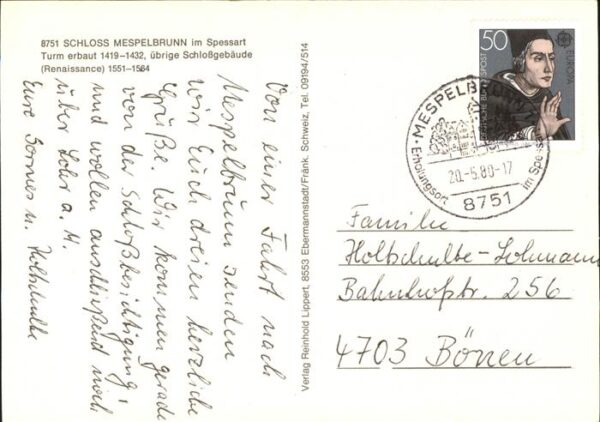 8751 SCHLOSS MESPELBRUNN im Spessart
Turm erbaut 1419–1432, übrige Schloßgebäude
(Renaissance) 1551–1564
Von einer Fahrt nach
Mespelbrunn senden
wir Euch dreien herzliche
Grüße. Wir kommen gerade
von der Schloßbesichtigung,
und wollen anschließend noch
über Lohr a. M.
Eure u. Holtschulte
Verlag Reinhold Lippert, 8553 Ebermannstadt/Fränk. Schweiz, Tel. 09194/514
50
EUROPA
DEUTSCHE BUNDESPOST
MESPELBRUNN
20.-5.80-17
Erholungsort
8751
im Spessart
Familie
Holtschulte-Lohmann
Bahnhofstr. 256
4703 Bönen